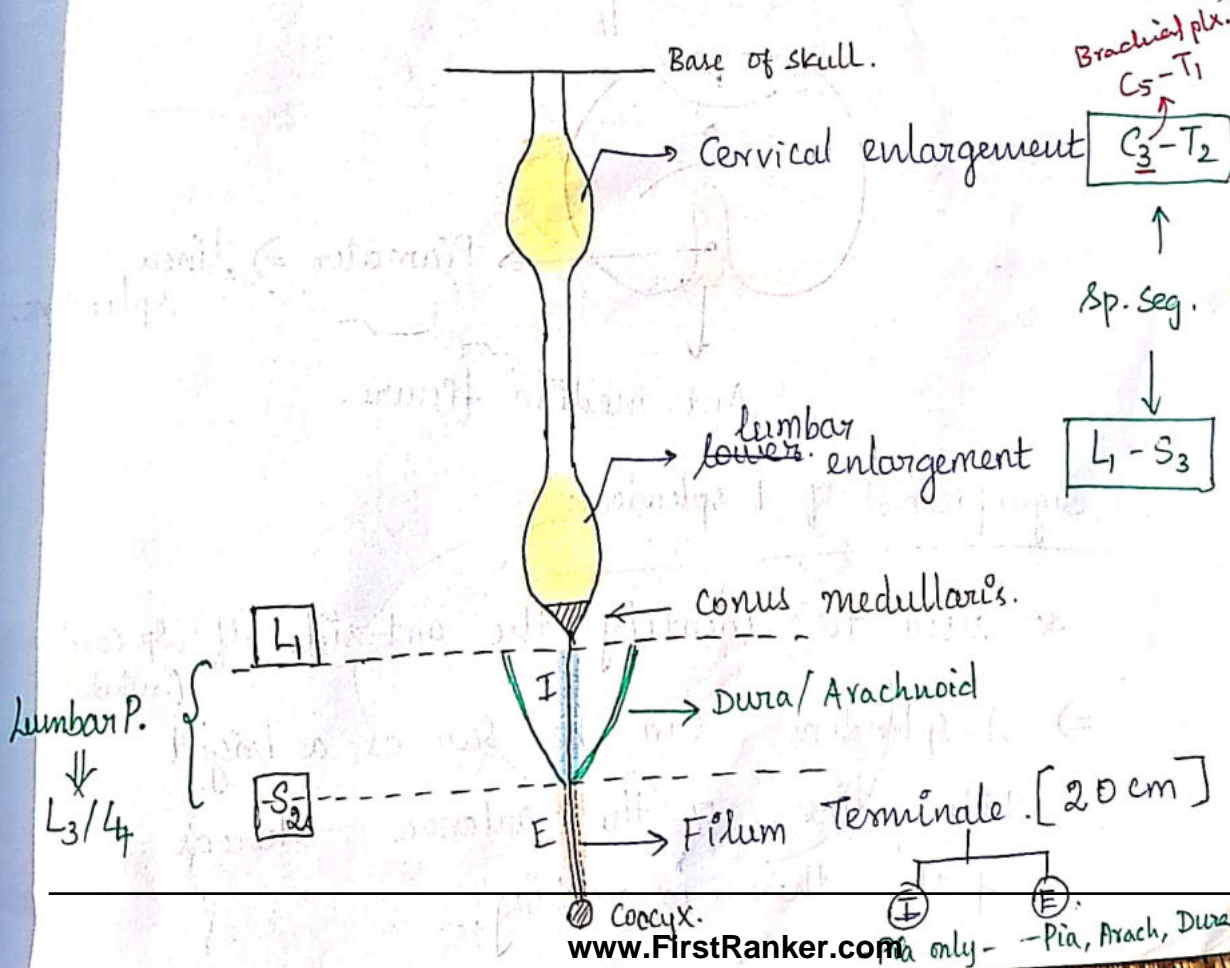 Base of skull.
Brachial plx.
C5-T1
Cervical enlargement
C3-T2
Sp. seg.
lumbar
lower. enlargement
L1 - S3
Conus medullaris.
L1
I
Dura/ Arachnoid
Lumbar P.
L3/L4
S2
E
Filum Terminale. [20 cm]
I
E
Coccyx.
only-
-Pia, Arach, Dura
www.FirstRanker.com